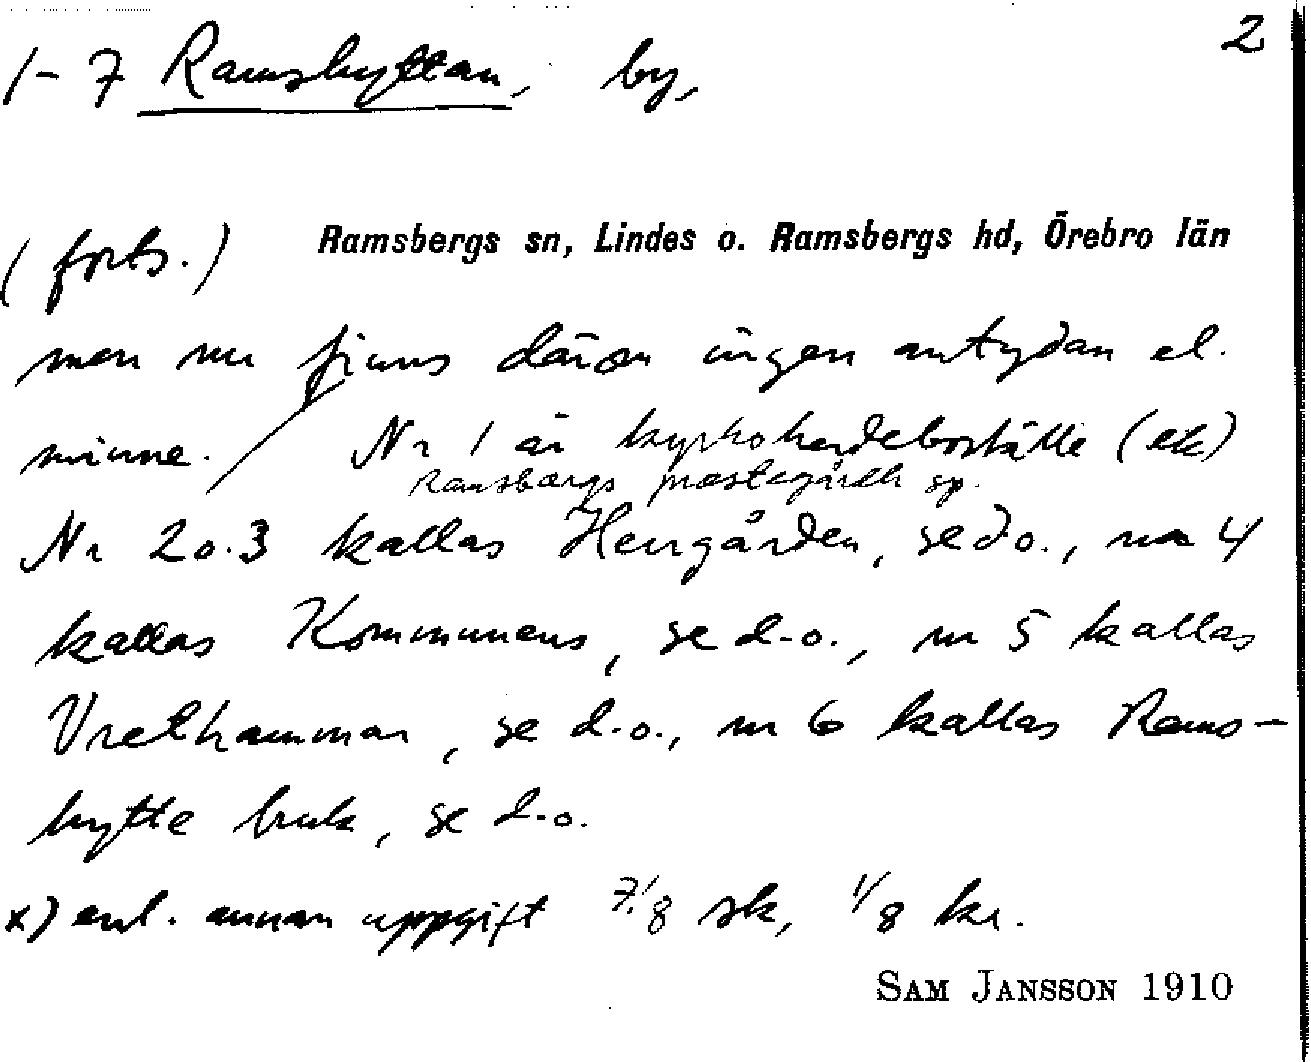 2
1-7 Ramshyttan, by,
(forts.) Ramsbergs sn, Lindes o. Ramsbergs hd, Örebro län
men nu finns därom ingen antydan el.
minne. / Nr 1 är kyrkoherdeboställe (ek)
Ramsbergs prästegårdh
Nr 2 o. 3 kallas Herrgården, se d o., nr 4
kallas Kommunens, se d-o., nr 5 kallas
Vrethammar, se d.o., nr 6 kallas Rams-
hytte bruk, se d.o.
x) enl. annan uppgift 7/8 sk, 1/8 kr.
SAM JANSSON 1910